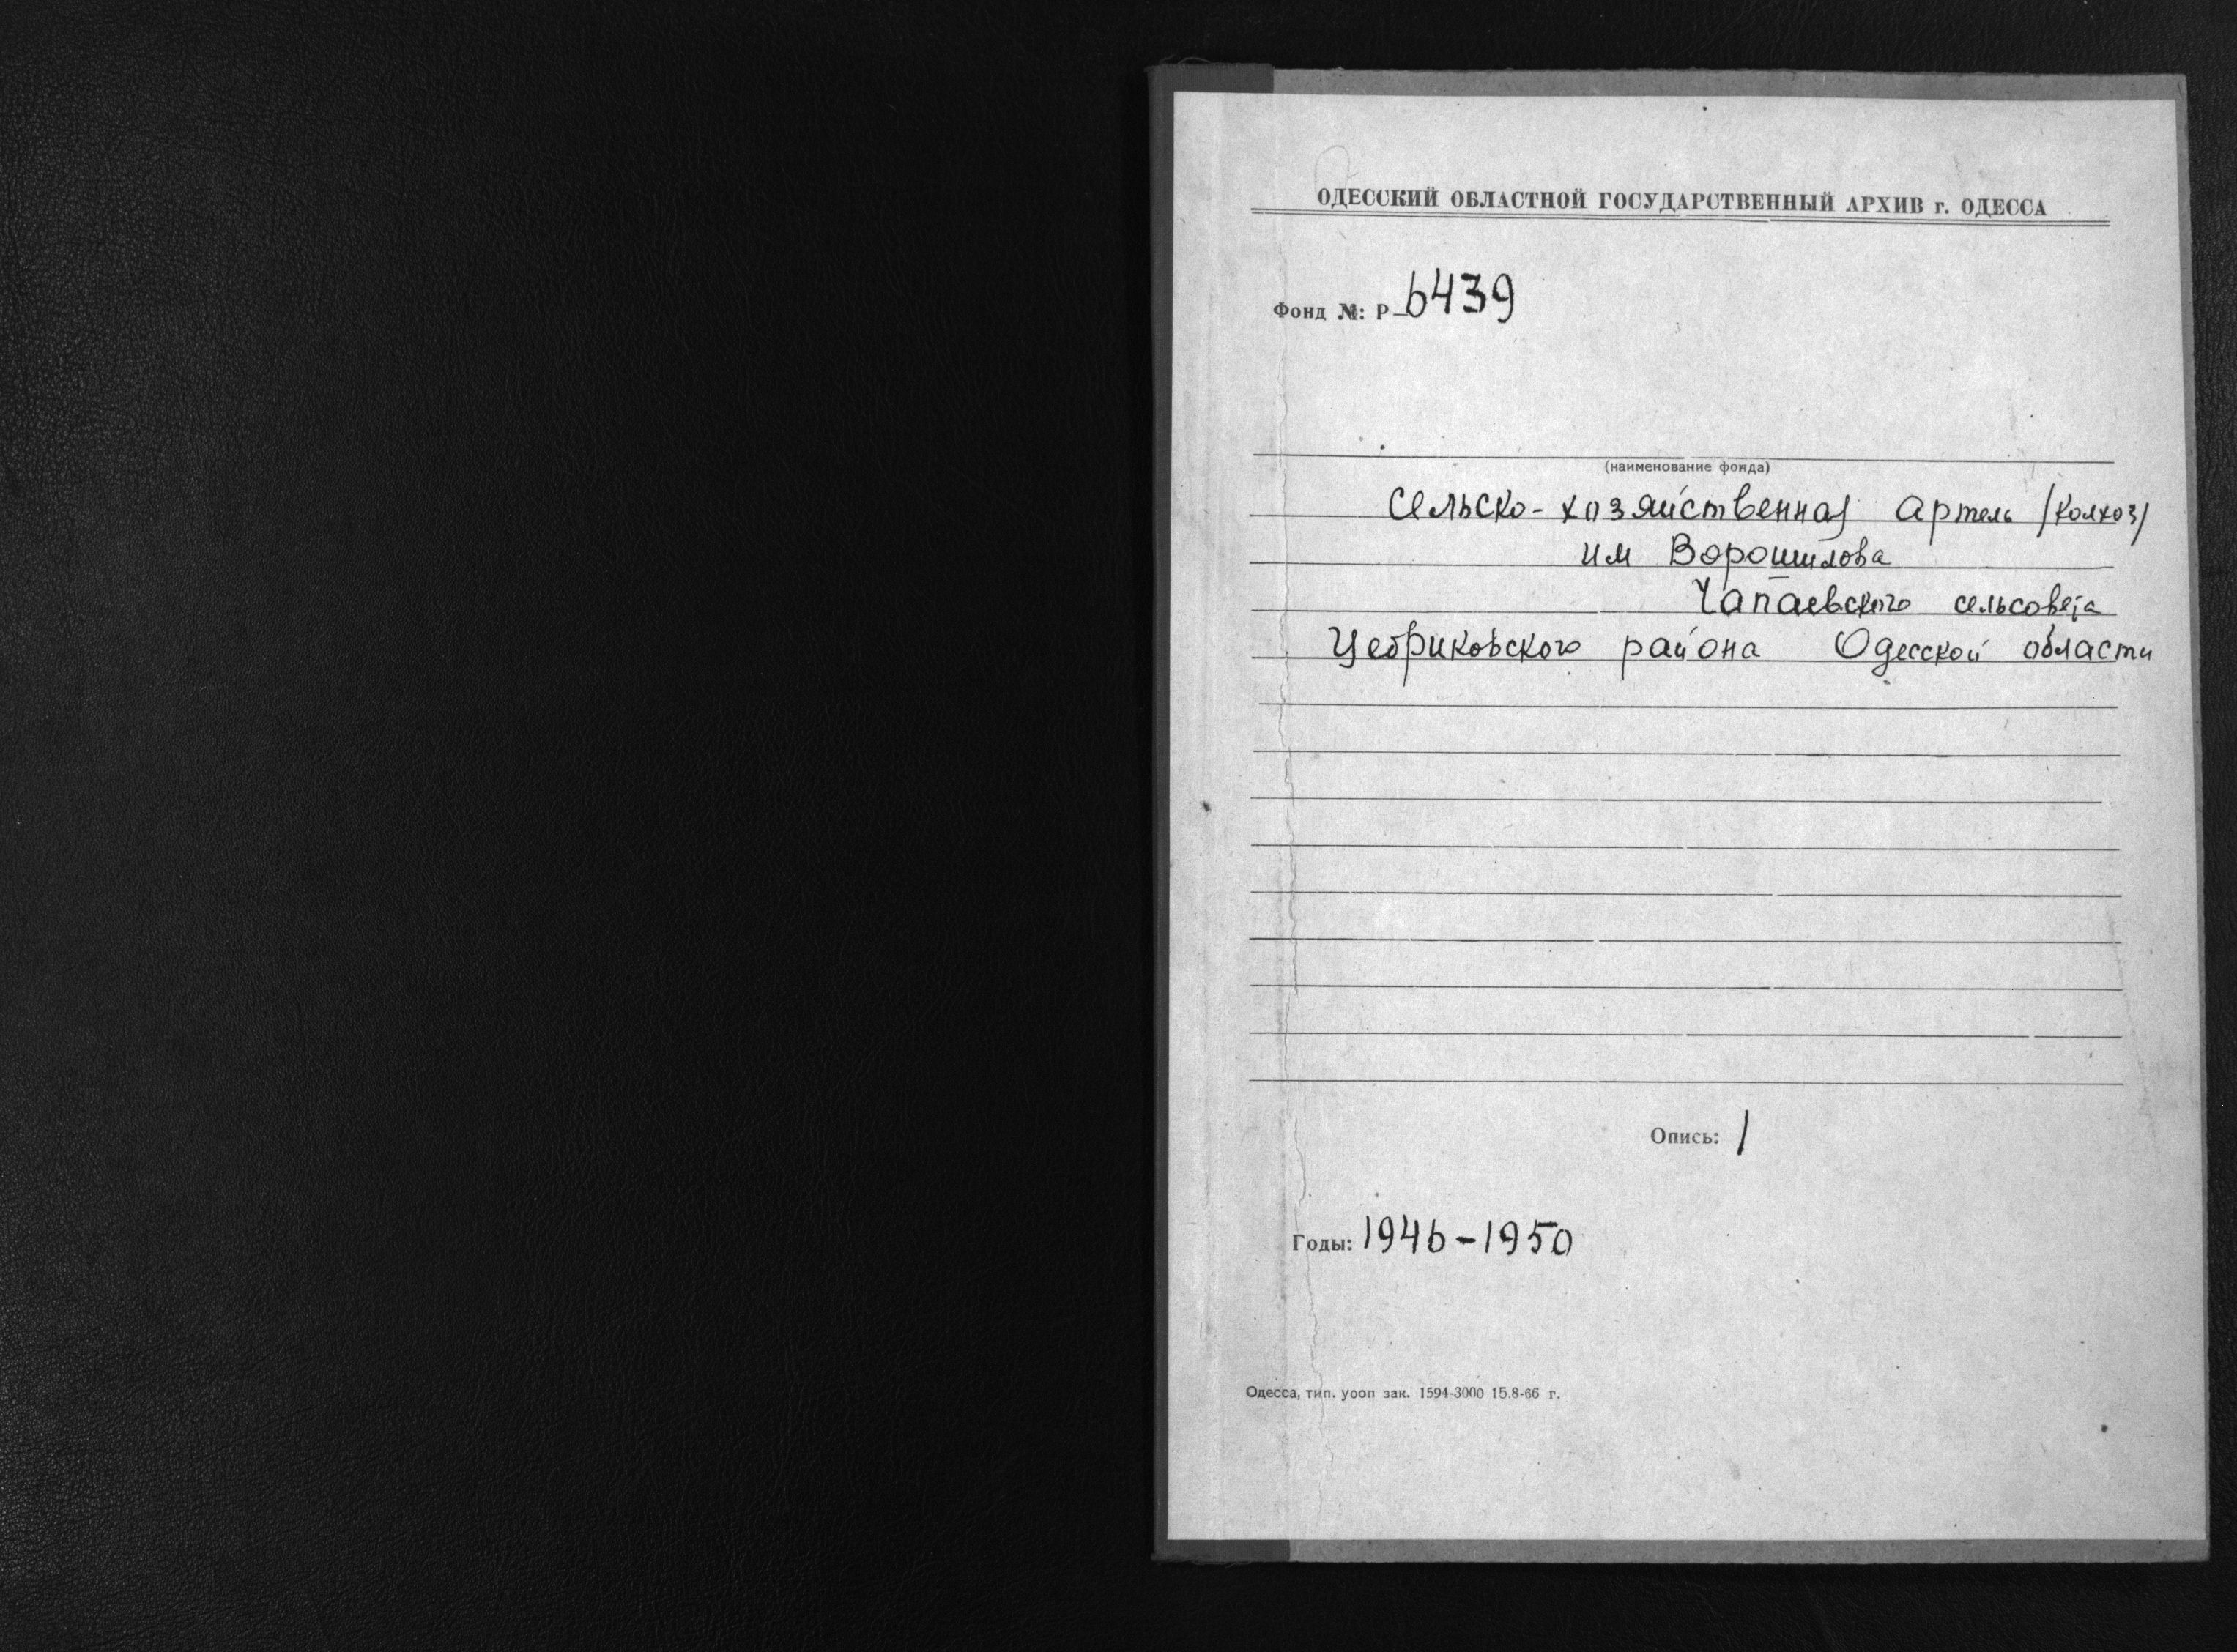 ОДЕССКИЙ ОБЛАСТНОЙ ГОСУДАРСТВЕННЫЙ АРХИВ г. ОДЕССА
Фонд №: Р-6439
(наименование фонда)
Сельско-хозяйственная Артель /колхоз/
им Ворошилова
Чапаевского сельсовета
Цебриковского района Одесской области
Опись: 1
Годы: 1946-1950
Одесса, тип. уооп зак. 1594-3000 15.8-66 г.